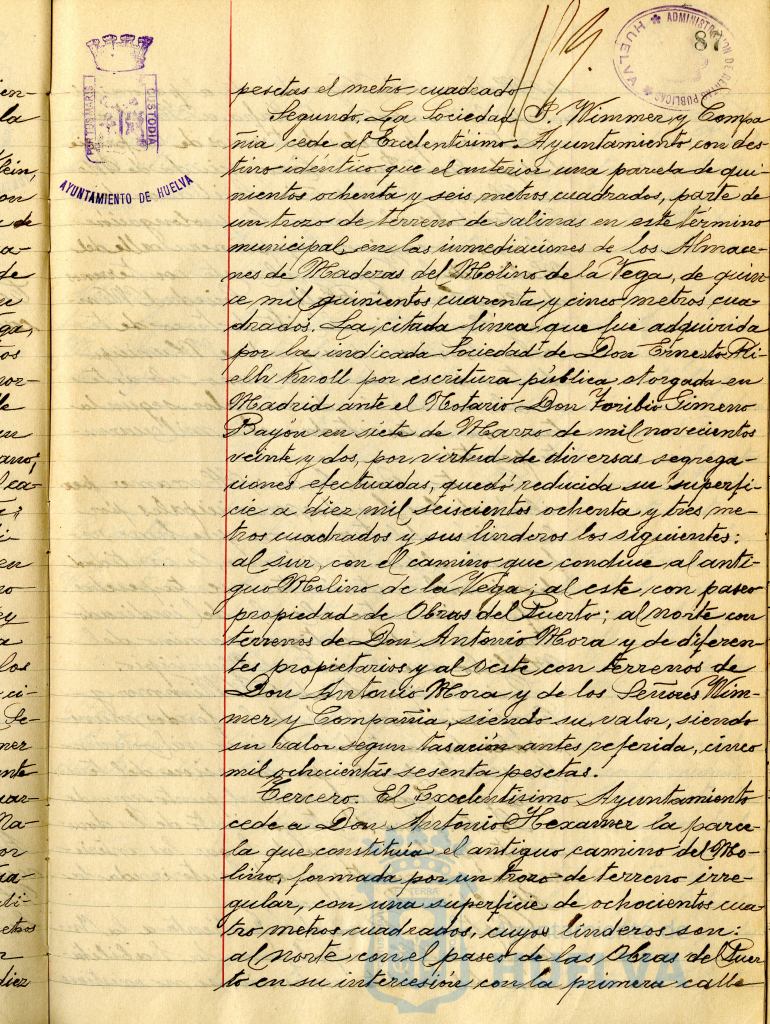 87
ADMINISTRACION DE RENTAS PUBLICAS
HUELVA
PORTUS MARIS
CUSTODIA
AYUNTAMIENTO DE HUELVA
pesetas el metro cuadrado
Segundo. La Sociedad P. Wimmer y Compa
ñia cede al Excelentísimo Ayuntamiento con des
tino idéntico que el anterior una parcela de qui-
nientos ochenta y seis metros cuadrados, parte de
un trozo de terreno de salinas en este término
municipal, en las inmediaciones de los Almace-
nes de Maderas del Molino de la Vega, de quin
ce mil quinientos cuarenta y cinco metros cua
drados. La citada finca que fue adquirida
por la indicada Sociedad de Don Ernesto
Knoll por escritura pública otorgada en
Madrid ante el Notario Don Toribio Gimeno
Bayón en siete de Marzo de mil novecientos
veinte y dos, por virtud de diversas segrega-
ciones efectuadas, quedó reducida su superfi-
cie a diez mil seiscientos ochenta y tres me-
tros cuadrados y sus linderos los siguientes:
al sur, con el camino que conduce al anti-
guo Molino de la Vega; al este con paseo
propiedad de Obras del Puerto; al norte con
terrenos de Don Antonio Mora y de diferen-
tes propietarios y al Oeste con terrenos de
Don Antonio Mora y de los Señores Wim-
mer y Compañia, siendo su valor, siendo
su valor segun tasación antes referida, cinco
mil ochocientas sesenta pesetas.
Tercero. El Excelentísimo Ayuntamiento
cede a Don Antonio Hexamer la parce-
la que constituía el antiguo camino del Mo-
lino, formada por un trozo de terreno irre-
gular, con una superficie de ochocientos cua-
tro metros cuadrados, cuyos linderos son:
al norte con el paseo de las Obras del Puer
to en su intercesión con la primera calle
HUELVA